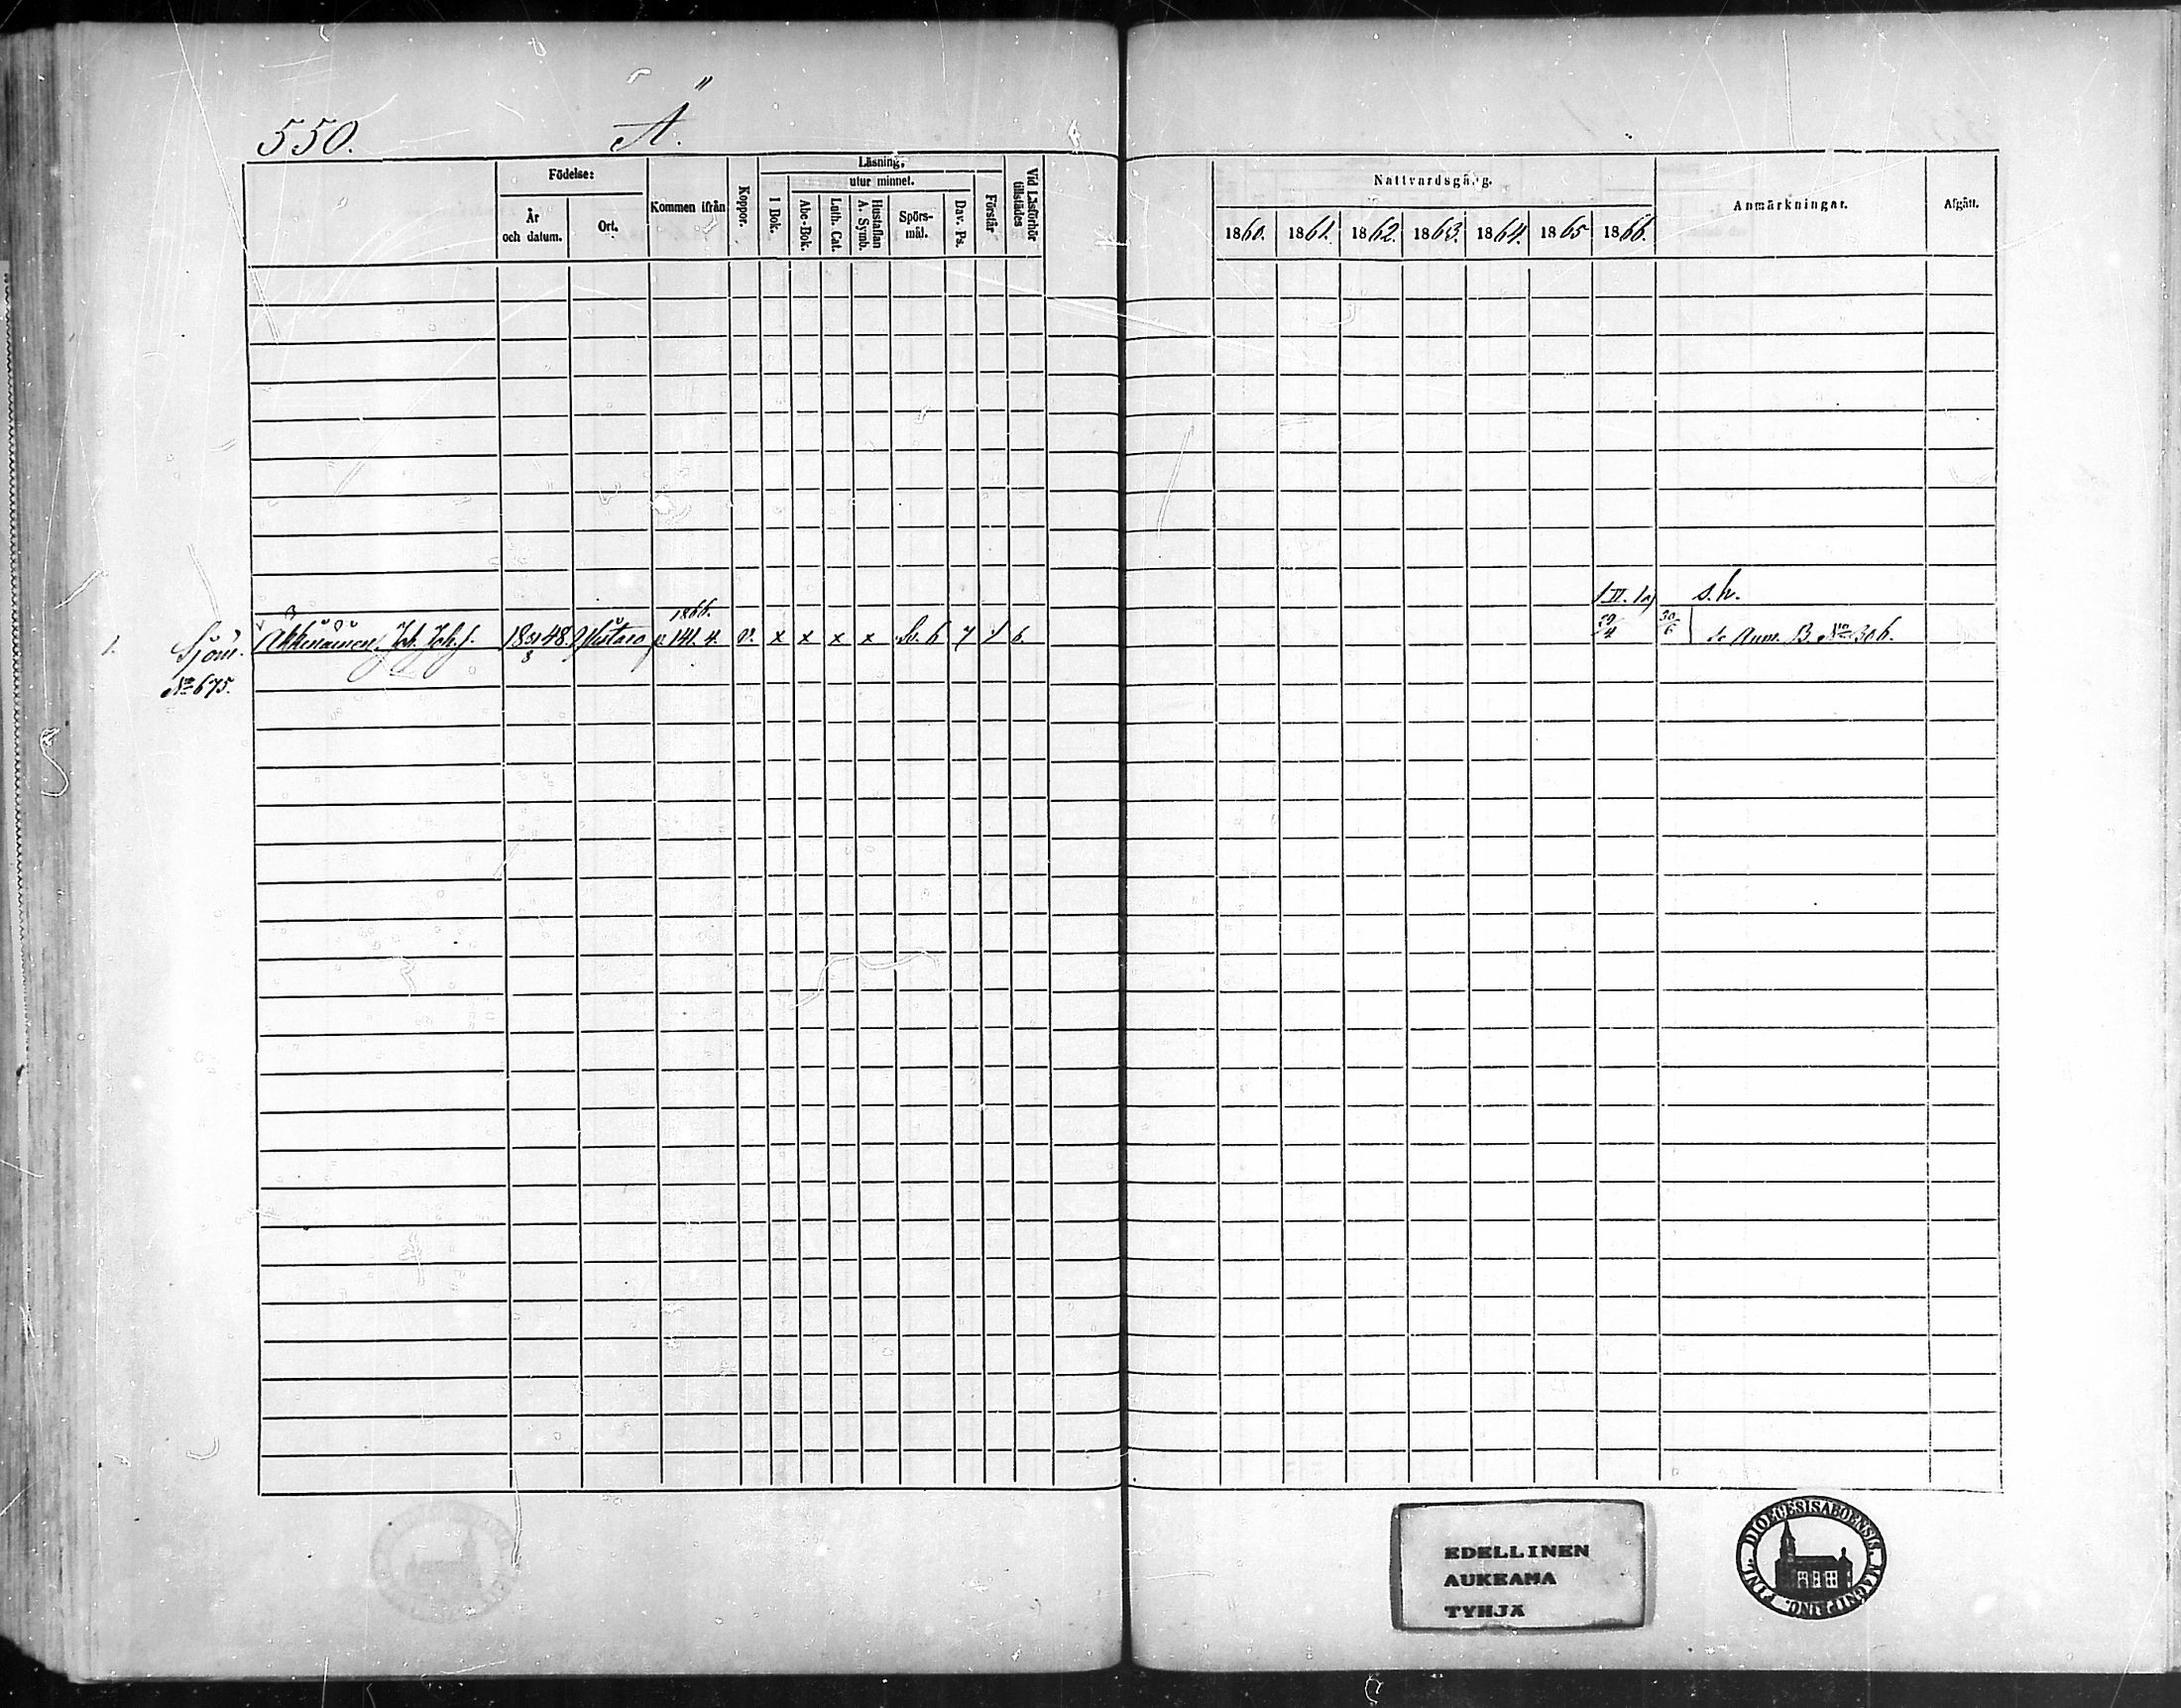 550. Ä.
Födelse:
År och datum.
Ort.
Kommen ifrån
Koppor.
Läsning,
I Bok.
utur minnet.
Abc-Bok.
Luth. Cat.
Hustaflan A. Symb.
Spörs-mål.
Dav. Ps.
Förstår
Vid Läsförhör tillstädes
Nattvardsgång.
1860. 1861. 1862. 1863. 1864. 1865 1866.
Anmärkningar.
Afgått.
1866. s. h.
1. Sjöm. Joh. Joh. s. 18 48 p. 141. 4. v. x x x x 6 7 6. 29/4 30/6 se Anm. B. No 306.
No 675.
EDELLINEN
AUKEAMA
TYHJÄ
FINL. DIOECESIS ABOENSIS. MAGNI PRINC.